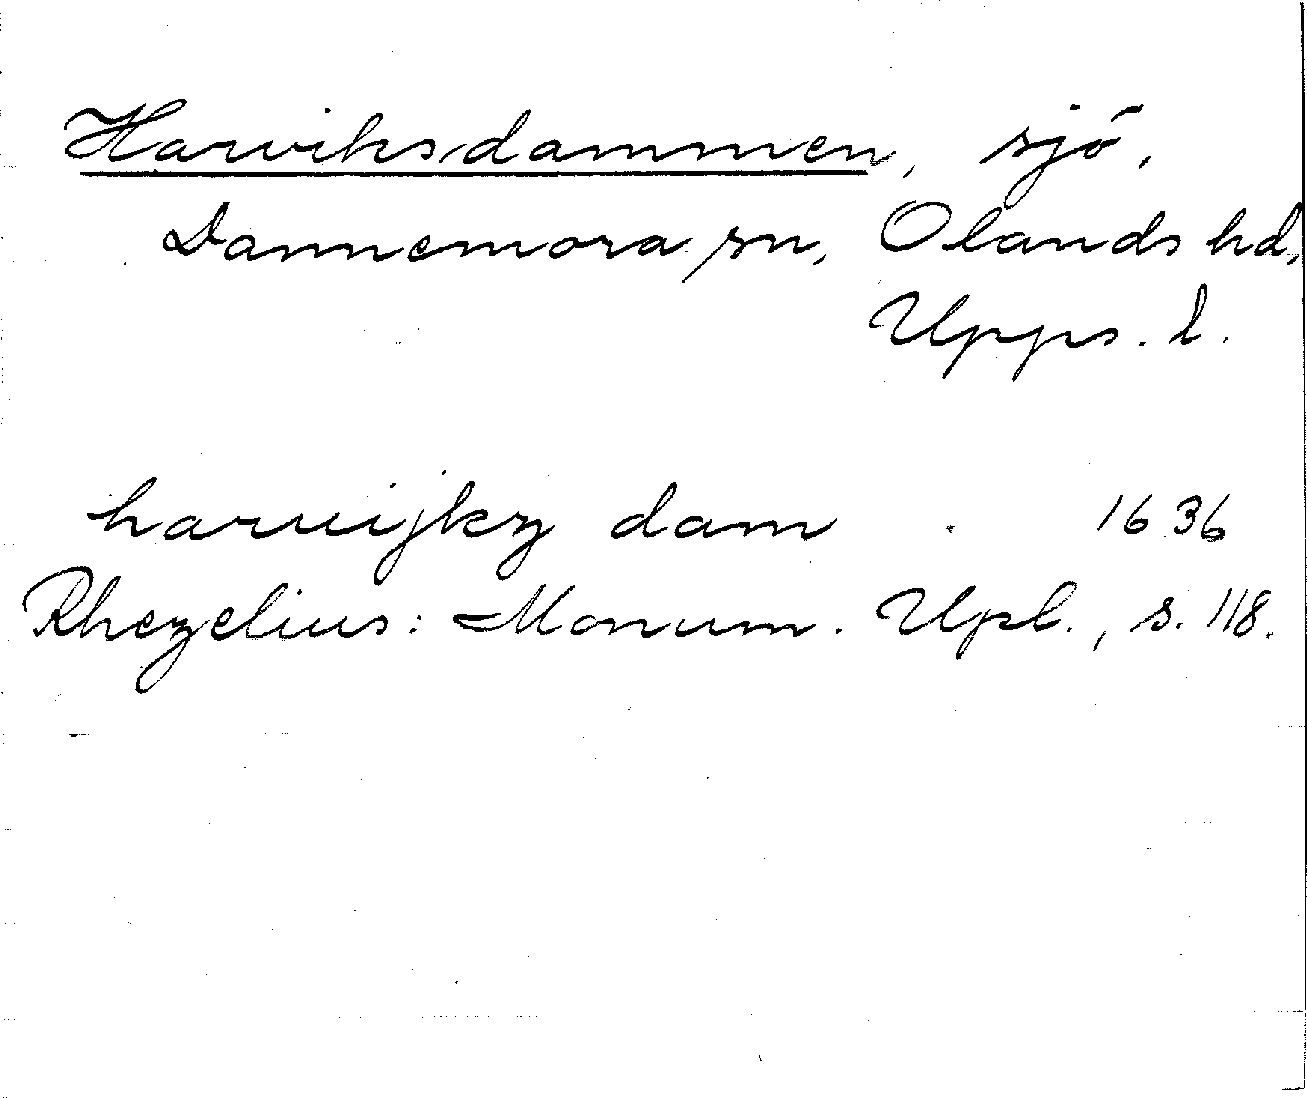 Harviksdammen, sjö,
Dannemora sn, Olands hd,
Upps. l.
haruijkz dam . 1636
Rhezelius: Monum. Upl., s. 118.